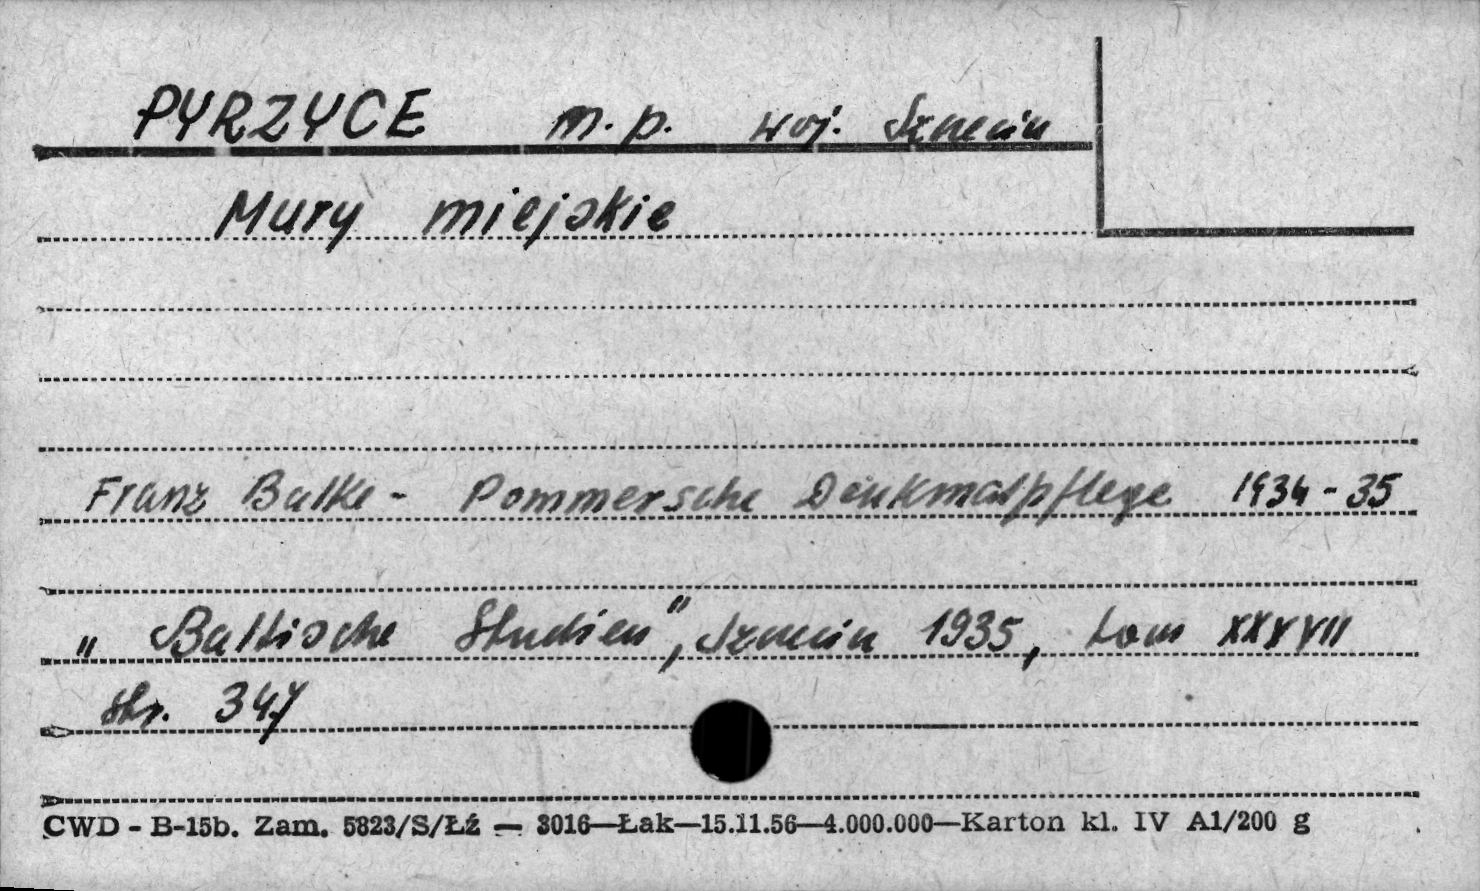 PYRZYCE m.p. woj. Szczecin
Mury miejskie
Franz Balke - Pommersche Denkmalpflege 1934-35
"Baltische Studien", Szczecin 1935, tom XXXVII
str. 347
CWD - B-15b. Zam. 5823/S/Łź — 3016—Łak—15.11.56—4.000.000—Karton kl. IV A1/200 g